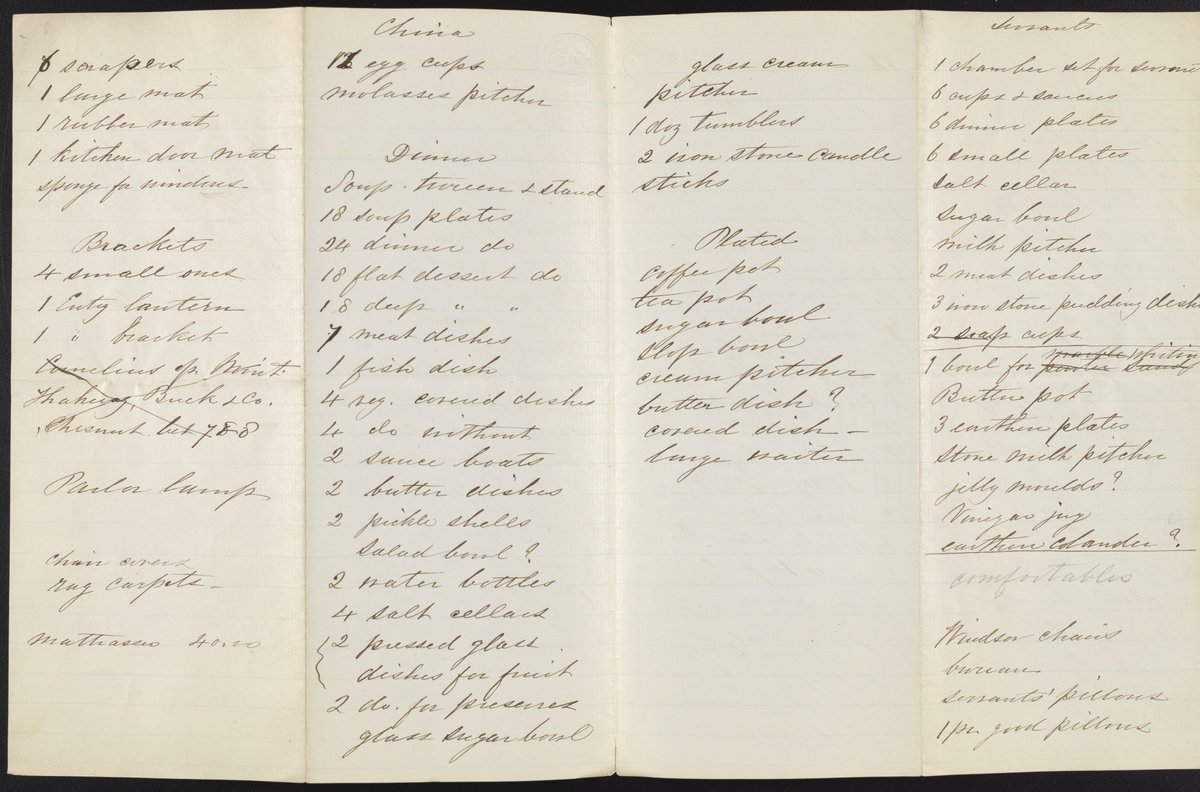 6 scrapers
1 large mat
1 rubber mat
1 kitchen door mat
sponge for windows

Brackets
4 small ones
1 Enty lantern
1 " bracket
Cornelius op. Mint.
Buck & Co.
Chesnut. bet 7 & 8

Parlor lamp

chair covers
rag carpets -

Mattrasses 40.00

China
12 egg cups
molasses pitcher

Dinner
Soup. tureen & stand
18 soup plates
24 dinner do
18 flat dessert do
18 deep " "
7 meat dishes
1 fish dish
4 veg. covered dishes
4 do without
2 sauce boats
2 butter dishes
2 pickle shells
salad bowl?
2 water bottles
4 salt cellars
2 pressed glass
dishes for fruit
2 do. for preserves
glass sugar bowl

glass cream
pitcher
1 doz tumblers
2 iron stone candle
sticks

Plated
coffee pot
tea pot
sugar bowl
slop bowl
cream pitcher
butter dish?
covered dish -
large waiter

Servants
1 chamber set for servant
6 cups & saucers
6 dinner plates
6 small plates
salt cellar
sugar bowl
milk pitcher
2 meat dishes
3 iron stone pudding dishes
2 soap cups
1 bowl for
Butter pot
3 earthen plates
stone milk pitcher
jelly moulds?
Vinegar jug
earthen colander?
comfortables

Windsor chairs
bureau
servants' pillows
1 pr. good pillows